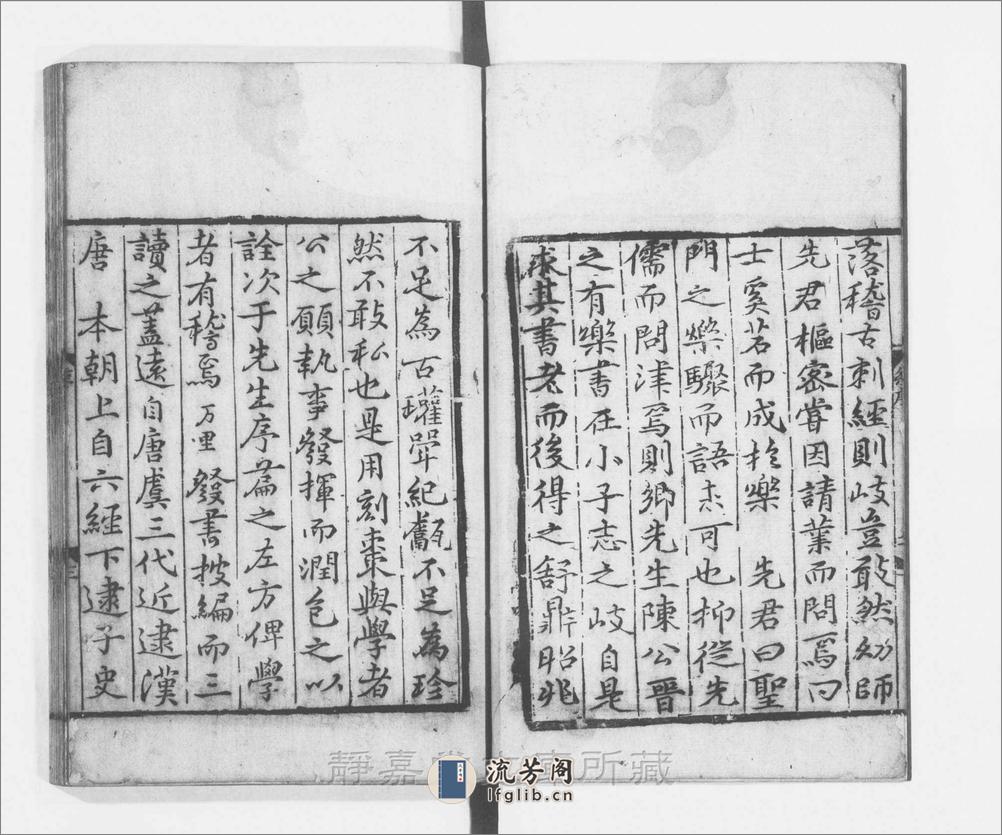 落稽古刺經則岐豈敢然幼師
先君樞密嘗因請業而問焉曰
士奚若而成於樂　先君曰聖
門之樂驟而語未可也抑從先
儒而問津焉則鄉先生陳公晉
之有樂書在小子志之岐自是
求其書老而後得之舒鼎昭兆
不足為古瓘斝紀甗不足為珍
然不敢私也是用刻棗與學者
公之願執事發揮而潤色之以
詮次于先生序篇之左方俾學
者有稽焉万里發書披編而三
讀之蓋遠自唐虞三代近逮漢
唐　本朝上自六經下逮子史
靜嘉堂文庫所藏
流芳阁
lfglib.cn